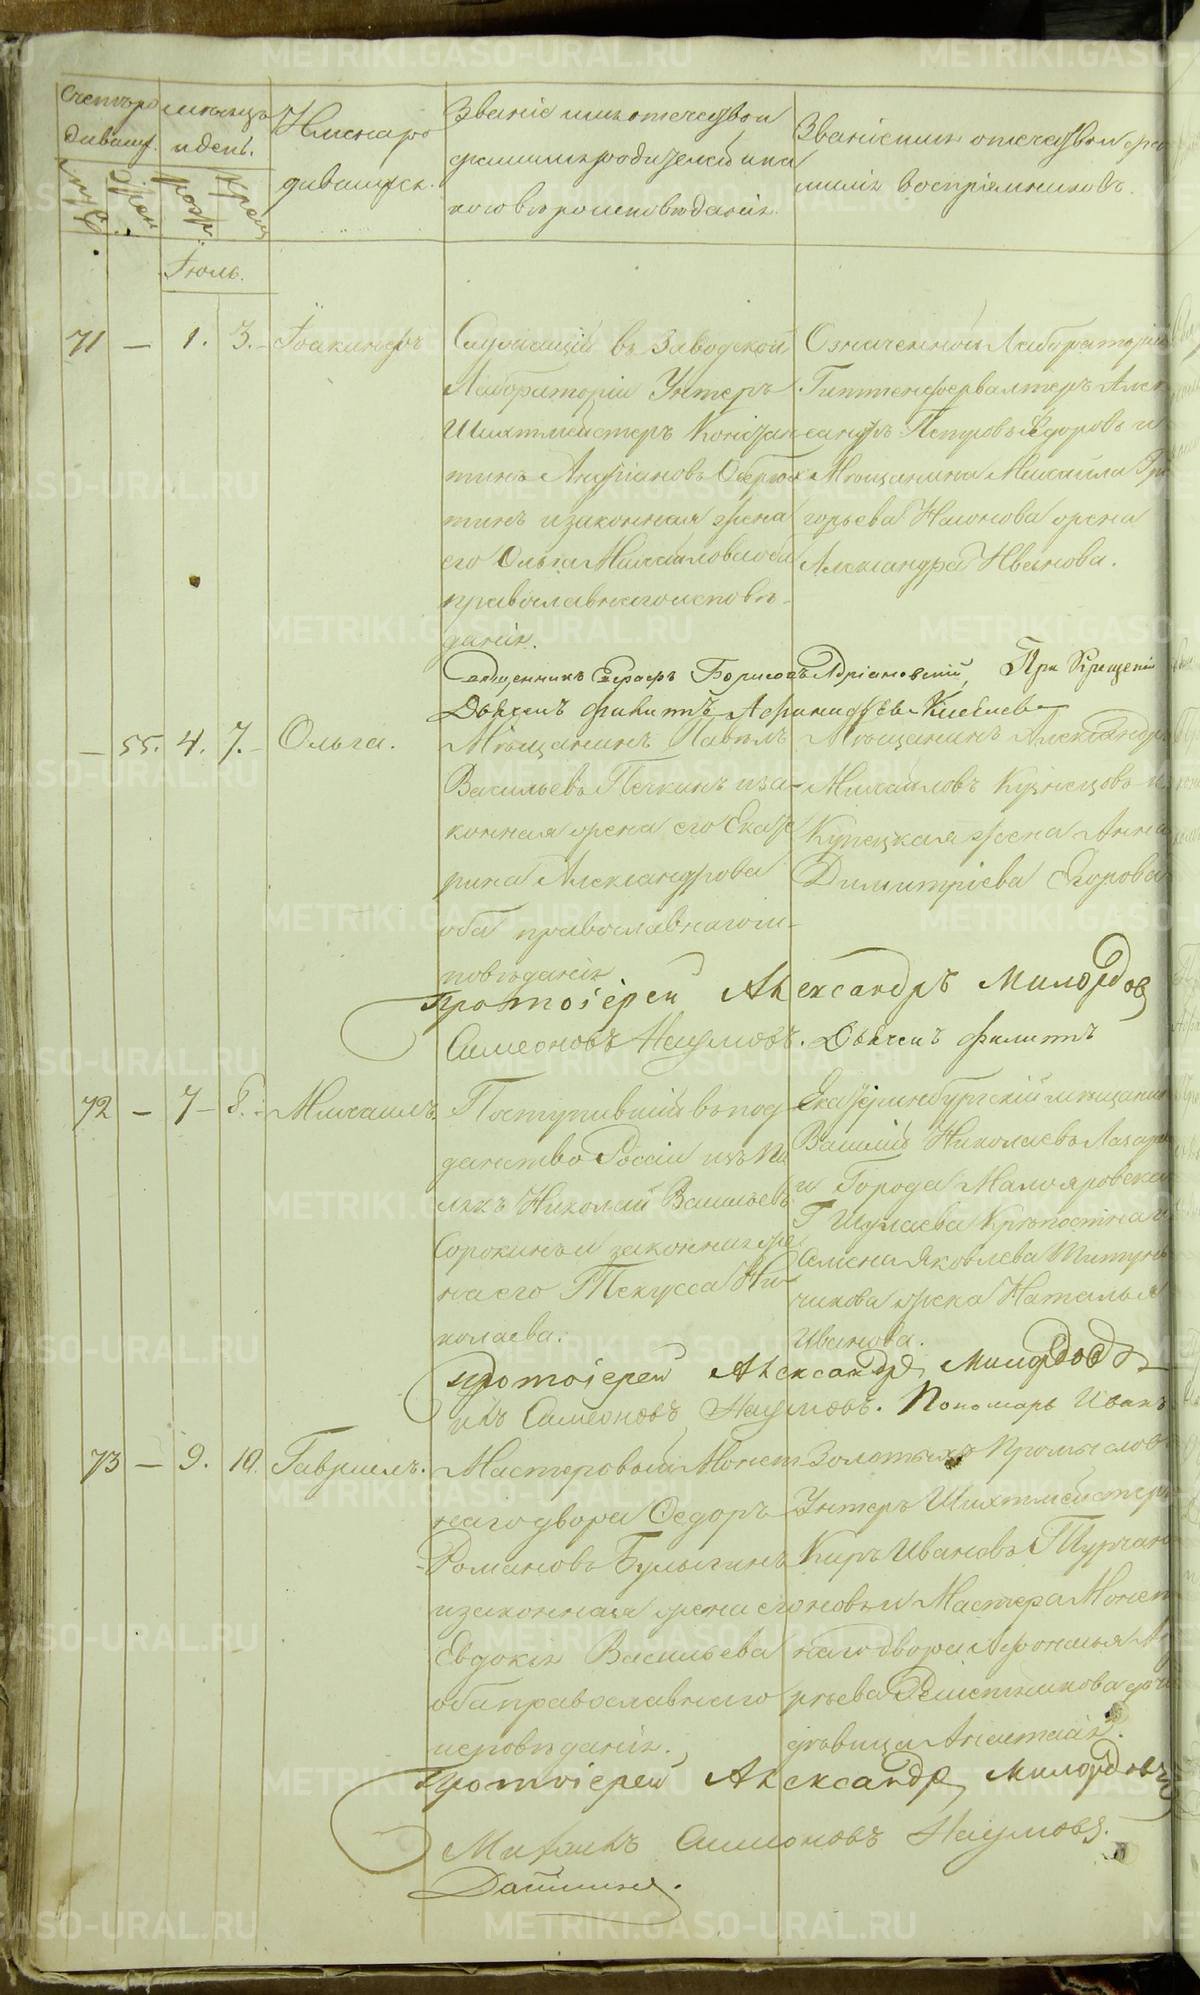 Счетъ ро
дившиx.
мѣсяцъ
и день.
Имена ро
дившихся.
Званіе имя отечество и
фамилія родителей и ка
кого вѣроисповѣданія.
Званіе имя отечество и фа
милія воспріемниковъ.
Іюль.
71 — 1. 3. Іоакинфъ
Служащій въ Заводской
Лабораторіи Унтеръ
Шихтмейстеръ Констан
тинъ Андріановъ
тинъ и законная жена
его Ольга Михайлова оба
православнаго исповѣ
данія.
Означенной Лабораторіи
Гиттенфервалтеръ Алек
сандръ Петровъ Ѳедоровъ и
Мѣщанина Михаила Гри
горьева жена
Александра Иванова.
Священникъ Борисовъ Адріановскій, При Крещеніи
Дьячекъ Филиппъ Киселев
— 55. 4. 7. Ольга.
Мѣщанинъ Павелъ
Васильевъ Печкинъ и за
конная жена его Екате
рина Александрова
оба православнаго ис
повѣданія.
Мѣщанинъ Александръ
Михайловъ Кузнецовъ и
Купецкая жена Анна
Димитріева Егорова
Протоіерей Александръ Милордовъ
Симеоновъ Наумовъ. Дьячекъ Филиппъ
72 — 7 8. Михаилъ.
Поступившій въ под
данство Россіи изъ
Николай Васильевъ
Сорокинъ и законная же
на его Текусса Ни
колаева.
Екатеринбургскій мѣщанинъ
Василій Николаевъ Лазаре
и Города Малоярославска
Г Крѣпостнаго
Семена Яковлева
чикова жена Наталья
Иванова.
Протоіерей Александръ Милордовъ
Симеоновъ Наумовъ. Пономарь Иванъ
73 — 9. 10. Гавриилъ.
Мастеровый Монет
наго двора Ѳедоръ
Романовъ Булыгинъ
и законная жена его
Евдокія Васильева
оба православнаго
исповѣданія.
Золотыхъ Промысловъ
Унтеръ Шихтмейстеръ
Киръ Ивановъ Турчани
новъ и Мастера Монет
наго двора Афонасья Ан
рѣева Решетникова дочь
дѣвица Анастасія.
Протоіерей Александръ Милордовъ
Симеоновъ Наумовъ.
METRIKI.GASO-URAL.RU